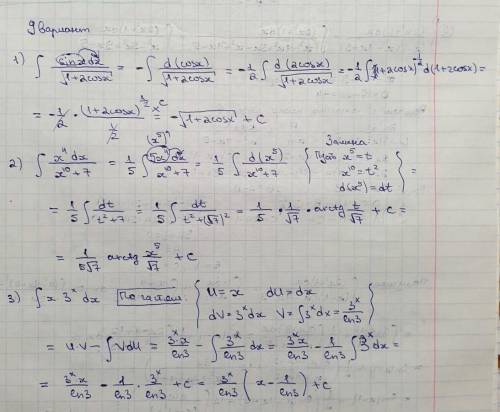 9 вариант
1) ∫ sinx dx / √(1+2cosx) = -∫ d(cosx) / √(1+2cosx) = -1/2 ∫ d(2cosx) / √(1+2cosx) = -1/2 ∫ (1+2cosx)^(-1/2) d(1+2cosx) =
= -1/2 · (1+2cosx)^(1/2) / (1/2) + C = -√(1+2cosx) + C
(x⁵)'
2) ∫ x⁴dx / (x¹⁰+7) = 1/5 ∫ 5x⁴dx / (x¹⁰+7) = 1/5 ∫ d(x⁵) / (x¹⁰+7) { Замена: Пусть x⁵ = t x¹⁰ = t² d(x⁵) = dt } =
= 1/5 ∫ dt / (t²+7) = 1/5 ∫ dt / (t²+(√7)²) = 1/5 · 1/√7 · arctg t/√7 + C =
= 1/(5√7) arctg x⁵/√7 + C
3) ∫ x 3ˣ dx По частям { U = x dU = dx dV = 3ˣdx V = ∫3ˣdx = 3ˣ/ln3 }
= U·V - ∫VdU = 3ˣ·x/ln3 - ∫ 3ˣ/ln3 dx = 3ˣx/ln3 - 1/ln3 ∫3ˣdx =
= 3ˣx/ln3 - 1/ln3 · 3ˣ/ln3 + C = 3ˣ/ln3 (x - 1/ln3) + C